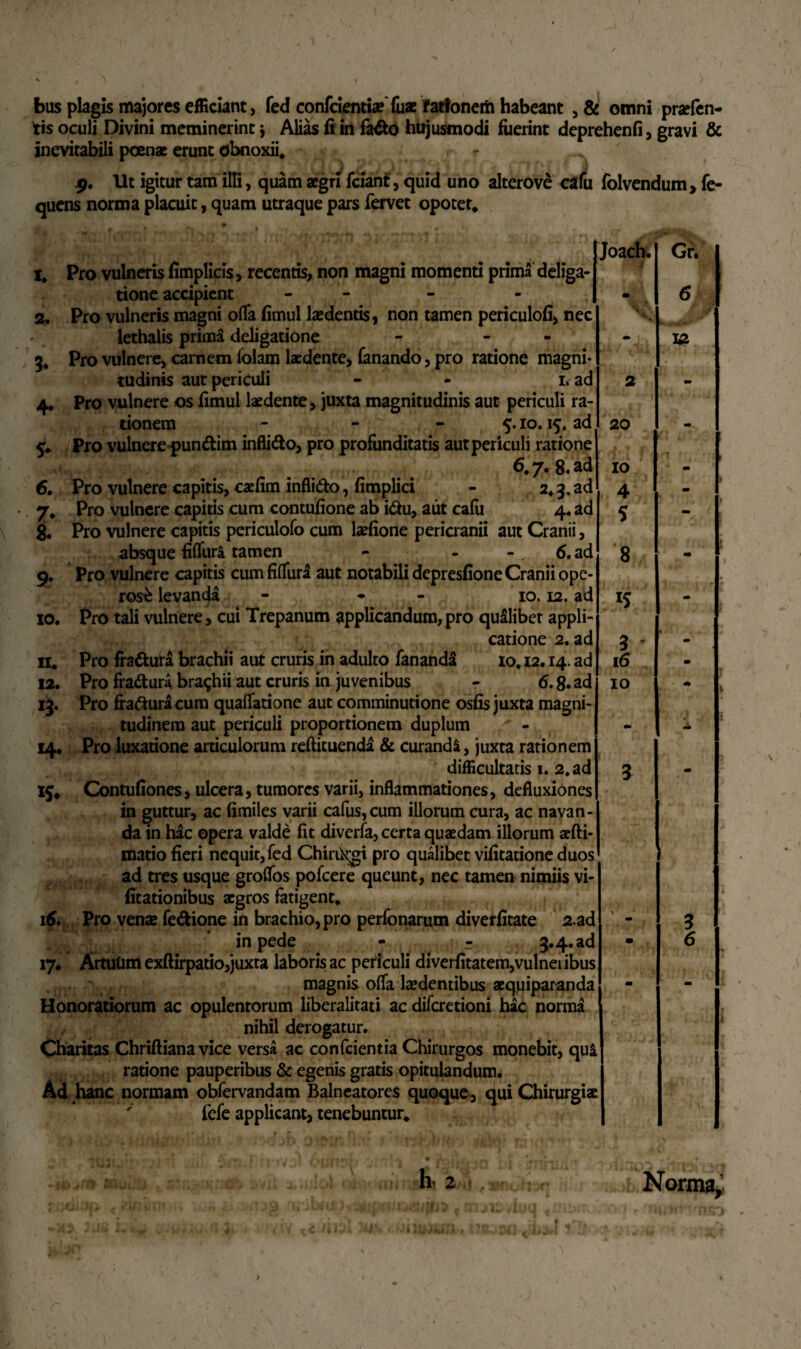 bus plagis majores efficiant, ſed conſcientiæ ſuæ rationem habeant , & omni præſen-
tis oculi Divini meminerint; Aliàs ſi in facto hujusmodi fuerint deprehenſi, gravi &
inevitabili pœnæ erunt obnoxii.
9. Ut igitur tam illi, quàm ægri ſciant, quid uno alterovè caſu ſolvendum, ſe-
quens norma placuit, quam utraque pars ſervet opotet.
Joach. Gr.
1. Pro vulneris ſimplicis, recentis, non magni momenti primâ deliga-
tione accipient - - - - - 6
2. Pro vulneris magni oſſa ſimul lædentis, non tamen periculoſi, nec
lethalis primâ deligatione - - - - 12
3. Pro vulnere, carnem ſolam lædente, ſanando, pro ratione magni-
tudinis aut periculi - - 1. ad 2 -
4. Pro vulnere os ſimul lædente, juxta magnitudinis aut periculi ra-
tionem - - - 5. 10. 15. ad 20 -
5. Pro vulnere punctim inflicto, pro profunditatis aut periculi ratione
6. 7. 8. ad 10 -
6. Pro vulnere capitis, cæſim inflicto, ſimplici - 2. 3. ad 4 -
7. Pro vulnere capitis cum contuſione ab ictu, aut caſu 4. ad 5 -
8. Pro vulnere capitis periculoſo cum læſione pericranii aut Cranii,
absque fiſſurâ tamen - - - 6. ad 8 -
9. Pro vulnere capitis cum fiſſurâ aut notabili depresſione Cranii ope-
rosè levandâ - - - 10. 12. ad 15 -
10. Pro tali vulnere, cui Trepanum applicandum, pro quâlibet appli-
catione 2. ad 3 -
11. Pro fracturâ brachii aut cruris in adulto ſanandâ 10. 12. 14. ad 16 -
12. Pro fracturâ brachii aut cruris in juvenibus - 6. 8. ad 10 -
13. Pro fracturâ cum quaſſatione aut comminutione osſis juxta magni-
tudinem aut periculi proportionem duplum - - -
14. Pro luxatione articulorum reſtituendâ & curandâ, juxta rationem
difficultatis 1. 2. ad 3 -
15. Contuſiones, ulcera, tumores varii, inflammationes, defluxiones
in guttur, ac ſimiles varii caſus, cum illorum cura, ac navan-
da in hâc opera valdè ſit diverſa, certa quædam illorum æſti-
matio fieri nequit, ſed Chirurgi pro quâlibet viſitatione duos
ad tres usque groſſos poſcere queunt, nec tamen nimiis vi-
ſitationibus ægros fatigent.
16. Pro venæ ſectione in brachio, pro perſonarum diverſitate 2. ad - 3
in pede - - 3. 4. ad - 6
17. Artuûm exſtirpatio, juxta laboris ac periculi diverſitatem, vulneribus
magnis oſſa lædentibus æquiparanda - -
Honoratiorum ac opulentorum liberalitati ac diſcretioni hâc normâ
nihil derogatur.
Charitas Chriſtiana vice versâ ac conſcientia Chirurgos monebit, quâ
ratione pauperibus & egenis gratis opitulandum.
Ad hanc normam obſervandam Balneatores quoque, qui Chirurgiæ
ſeſe applicant, tenebuntur.
h 2 Norma,